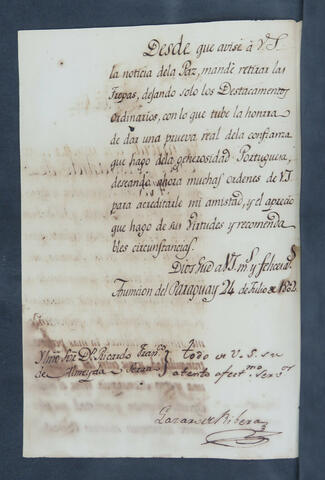 Desde que avisé à V.S.
la noticia dela Paz, mandè retirar las
Tropas, dejando solo los Destacamentos
ordinarios, con lo que tube la honrra
de dar una prueva real dela confianza
que hago dela generosidad Portuguesa,
deseando ahora muchas ordenes de V.S.
para acreditarle mi amistad, y el aprecio
que hago de sus Virtudes y recomenda
bles circunstancias.
Dios gũe a V.S. ms. y felices as.
Asuncion del Paraguay 24 de Julio de 1802.
Yllmo Sor Dn. Ricardo Franco
de Almeyda Serra
B.L.M. de V.S. su
atento afectmo. Servor.
Lazaro de Ribera